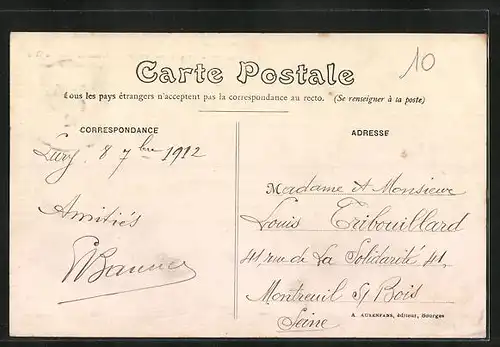 10
Carte Postale
Tous les pays étrangers n'acceptent pas la correspondance au recto. (Se renseigner à la poste)
CORRESPONDANCE
ADRESSE
Lury 8 7bre 1912
Amitiés
Madame et Monsieur
Louis Tribouillard
41, rue de La Solidarité 41,
Montreuil S/ Bois
Seine
A. AUXENFANS, éditeur, Bourges